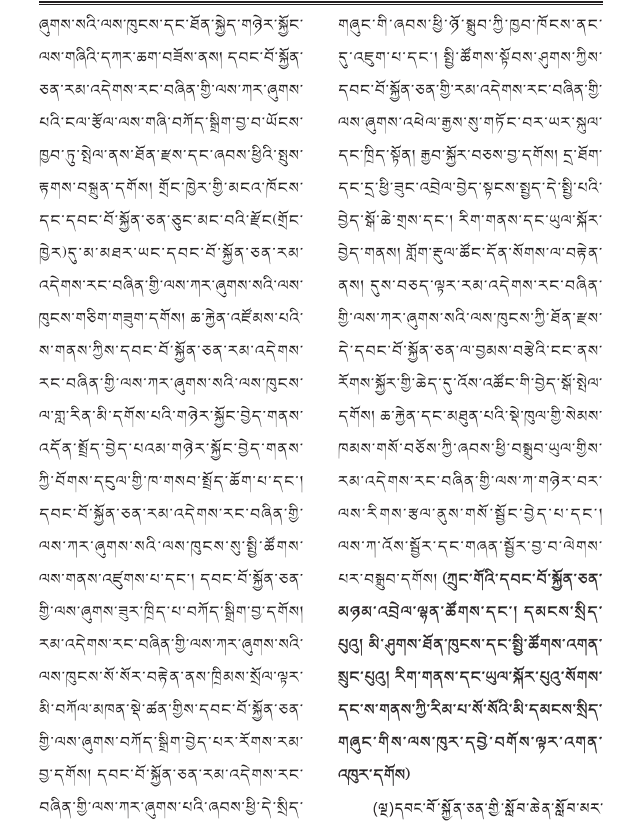 ཞུགས་སའི་ལས་ཁུངས་དང་ཐོན་སྐྱེད་གཉེར་སྐྱོང་
ལས་གཞིའི་དཀར་ཆག་བཟོས་ནས། དབང་པོ་སྐྱོན་
ཅན་རམ་འདེགས་རང་བཞིན་གྱི་ལས་ཀར་ཞུགས་
པའི་ངལ་རྩོལ་ལས་གཞི་བཀོད་སྒྲིག་བྱ་བ་ཡོངས་
ཁྱབ་ཏུ་སྤེལ་ནས་ཐོན་རྫས་དང་ཞབས་ཕྱིའི་སྤུས་
རྟགས་བསྐྲུན་དགོས། གྲོང་ཁྱེར་གྱི་མངའ་ཁོངས་
དང་དབང་པོ་སྐྱོན་ཅན་ཅུང་མང་བའི་རྫོང(གྲོང་
ཁྱེར)དུ་མ་མཐར་ཡང་དབང་པོ་སྐྱོན་ཅན་རམ་
འདེགས་རང་བཞིན་གྱི་ལས་ཀར་ཞུགས་སའི་ལས་
ཁུངས་གཅིག་གཟུག་དགོས། ཆ་རྐྱེན་འཛོམས་པའི་
ས་གནས་ཀྱིས་དབང་པོ་སྐྱོན་ཅན་རམ་འདེགས་
རང་བཞིན་གྱི་ལས་ཀར་ཞུགས་སའི་ལས་ཁུངས་
ལ་གླ་རིན་མི་དགོས་པའི་གཉེར་སྐྱོང་བྱེད་གནས་
འདོན་སྤྲོད་བྱེད་པའམ་གཉེར་སྐྱོང་བྱེད་གནས་
ཀྱི་བོགས་དངུལ་གྱི་ཁ་གསབ་སྤྲོད་ཆོག་པ་དང་།
དབང་པོ་སྐྱོན་ཅན་རམ་འདེགས་རང་བཞིན་གྱི་
ལས་ཀར་ཞུགས་སའི་ལས་ཁུངས་སུ་སྤྱི་ཚོགས་
ལས་གནས་འཛུགས་པ་དང་། དབང་པོ་སྐྱོན་ཅན་
གྱི་ལས་ཞུགས་ཟུར་ཁྲིད་པ་བཀོད་སྒྲིག་བྱ་དགོས།
རམ་འདེགས་རང་བཞིན་གྱི་ལས་ཀར་ཞུགས་སའི་
ལས་ཁུངས་སོ་སོར་བརྟེན་ནས་ཁྲིམས་སྲོལ་ལྟར་
མི་བཀོལ་མཁན་སྡེ་ཚན་གྱིས་དབང་པོ་སྐྱོན་ཅན་
གྱི་ལས་ཞུགས་བཀོད་སྒྲིག་བྱེད་པར་རོགས་རམ་
བྱ་དགོས། དབང་པོ་སྐྱོན་ཅན་རམ་འདེགས་རང་
བཞིན་གྱི་ལས་ཀར་ཞུགས་པའི་ཞབས་ཕྱི་དེ་སྲིད་
གཞུང་གི་ཞབས་ཕྱི་ཉོ་སྒྲུབ་ཀྱི་ཁྱབ་ཁོངས་ནང་
དུ་འཇུག་པ་དང་། སྤྱི་ཚོགས་སྟོབས་ཤུགས་ཀྱིས་
དབང་པོ་སྐྱོན་ཅན་གྱི་རམ་འདེགས་རང་བཞིན་གྱི་
ལས་ཞུགས་འཕེལ་རྒྱས་སུ་གཏོང་བར་ཡར་སྐུལ་
དང་ཁྲིད་སྟོན། རྒྱབ་སྐྱོར་བཅས་བྱ་དགོས། དྲ་ཐོག་
དང་དྲ་ཕྱི་ཟུང་འབྲེལ་བྱེད་སྟངས་སྤྱད་དེ་སྤྱི་པའི་
བྱེད་སྒོ་ཆེ་གྲས་དང་། རིག་གནས་དང་ཡུལ་སྐོར་
བྱེད་གནས། གློག་རྡུལ་ཚོང་དོན་སོགས་ལ་བརྟེན་
ནས། དུས་བཅད་ལྟར་རམ་འདེགས་རང་བཞིན་
གྱི་ལས་ཀར་ཞུགས་སའི་ལས་ཁུངས་ཀྱི་ཐོན་རྫས་
དེ་དབང་པོ་སྐྱོན་ཅན་ལ་བྱམས་བརྩེའི་ངང་ནས་
རོགས་སྐྱོར་གྱི་ཆེད་དུ་འོས་འཚོང་གི་བྱེད་སྒོ་སྤེལ་
དགོས། ཆ་རྐྱེན་དང་མཐུན་པའི་སྡེ་ཁུལ་གྱི་སེམས་
ཁམས་གསོ་བཅོས་ཀྱི་ཞབས་ཕྱི་བསྒྲུབ་ཡུལ་གྱིས་
རམ་འདེགས་རང་བཞིན་གྱི་ལས་ཀ་གཉེར་བར་
ལས་རིགས་རྩལ་ནུས་གསོ་སྦྱོང་བྱེད་པ་དང་།
ལས་ཀ་འོས་སྦྱོར་དང་གཞན་སྦྱོར་བྱ་བ་ལེགས་
པར་བསྒྲུབ་དགོས། (ཀྲུང་གོའི་དབང་པོ་སྐྱོན་ཅན་
མཉམ་འབྲེལ་ལྷན་ཚོགས་དང་། དམངས་སྲིད་
པུའུ། མི་ཤུགས་ཐོན་ཁུངས་དང་སྤྱི་ཚོགས་འགན་
སྲུང་པུའུ། རིག་གནས་དང་ཡུལ་སྐོར་པུའུ་སོགས་
དང་ས་གནས་ཀྱི་རིམ་པ་སོ་སོའི་མི་དམངས་སྲིད་
གཞུང་གིས་ལས་ཁུར་དབྱེ་བགོས་ལྟར་འགན་
འཁུར་དགོས)
(ལྔ)དབང་པོ་སྐྱོན་ཅན་གྱི་སློབ་ཆེན་སློབ་མར་